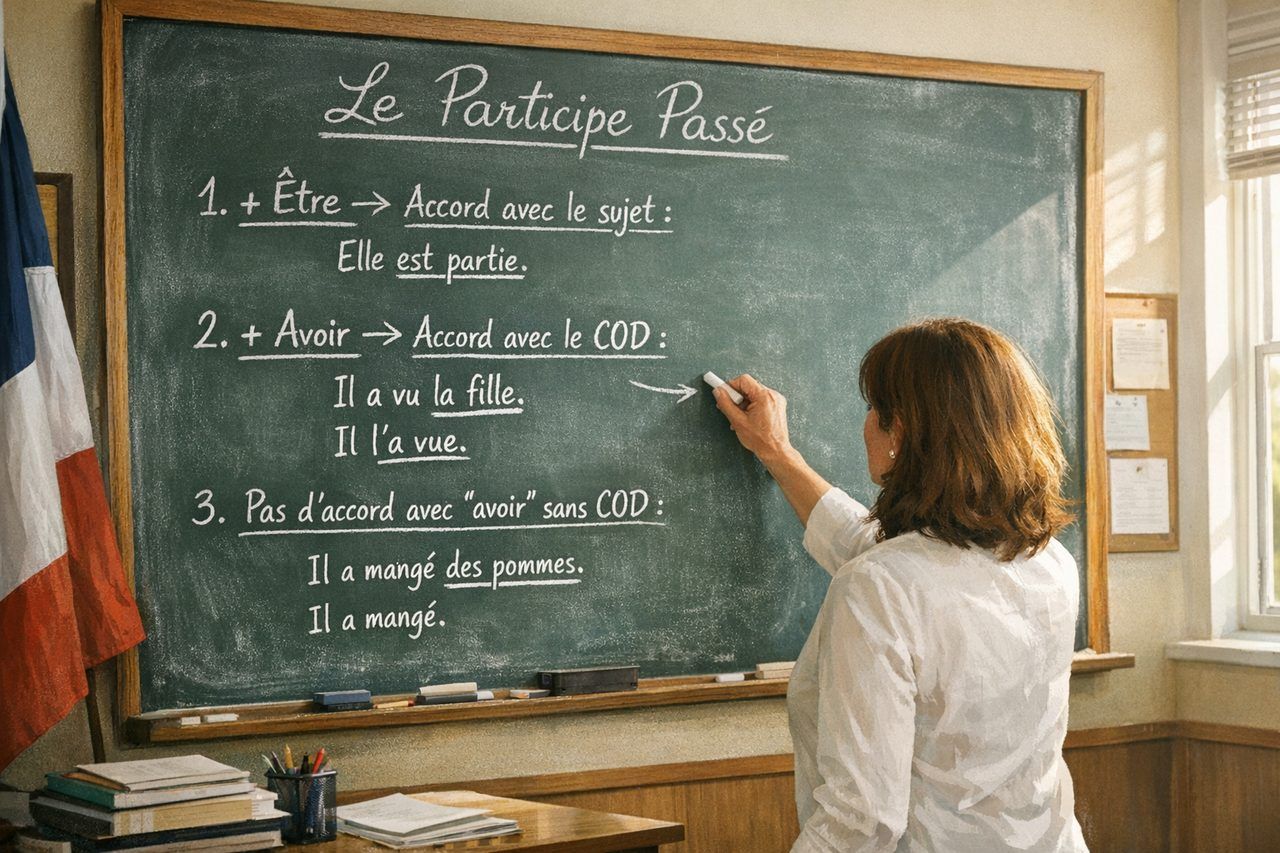 Le Participe Passé
1. + Être → Accord avec le sujet :
Elle est partie.
2. + Avoir → Accord avec le COD :
Il a vu la fille.
Il l'a vue.
3. Pas d'accord avec "avoir" sans COD :
Il a mangé des pommes.
Il a mangé.